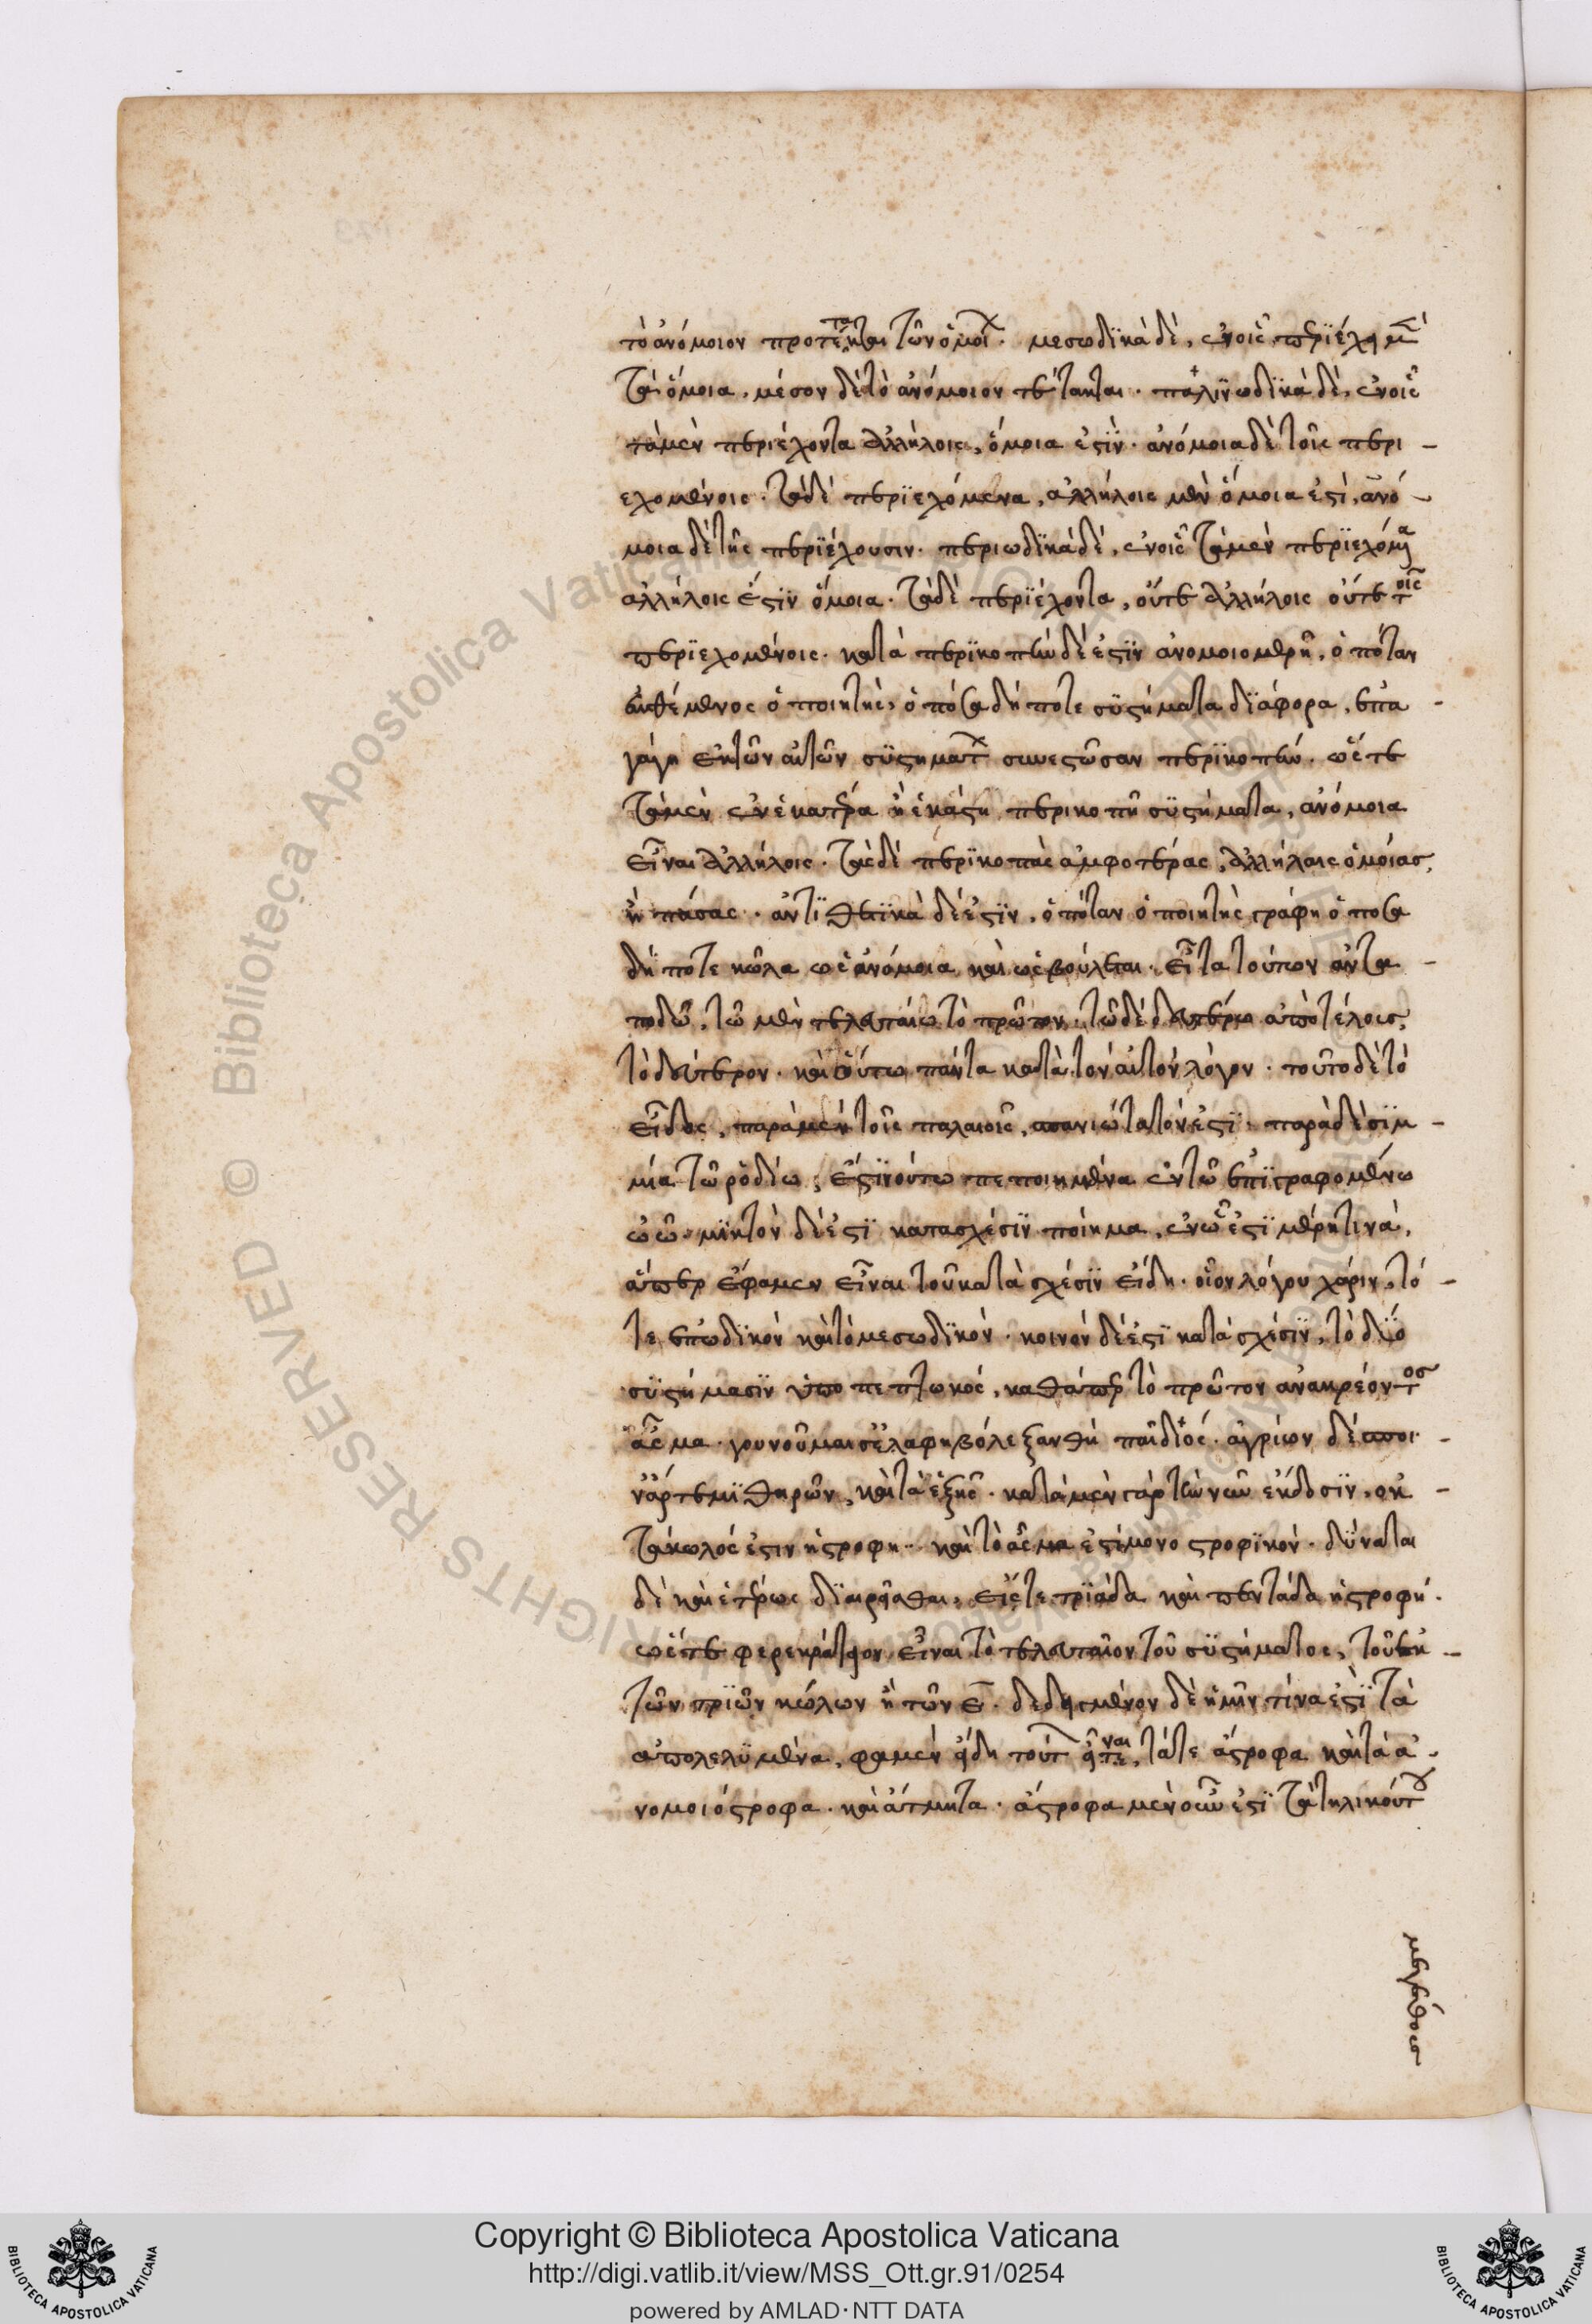 τὸ ἀνόμοιον προτέτακται τῶν ὁμοίων. μεσωδϊκὰ δέ, ἐν οἷς περϊέχει μὲν
τὰ ὅμοια, μέσον δὲ τὸ ἀνόμοιον τέτακται. παλϊνωδϊκὰ δέ, ἐν οἷς
τὰ μὲν περιέχοντα ἀλλήλοις, ὅμοια ἐστϊν. ἀνόμοια δὲ τοῖς περι-
εχομένοις. τὰ δὲ περϊεχόμενα, ἀλλήλοις μὲν ὅμοια ἐστὶ, ἀνό-
μοια δὲ τοῖς περϊέχουσιν. περιωδϊκὰ δέ, ἐν οἷς τὰ μὲν περϊεχόμενα
ἀλλήλοις ἐστϊν ὅμοια. τὰ δὲ περϊέχοντα, οὔτε ἀλλήλοις οὔτε τοῖς
περϊεχομένοις. κατὰ περϊκοπὴν δέ ἐστϊν ἀνομοιομερῆ, ὁπόταν
ἐκθέμενος ὁ ποιητὴς, ὁπόσα δήποτε συστήματα δϊάφορα, ἐπα-
γάγη ἐκ τῶν αὐτῶν συστημάτων συνεστῶσαν περϊκοπήν. ὥς τε
τὰ μὲν ἐν ἑκατέρα ἢ ἑκάστη περικοπῆ συστήματα, ἀνόμοια
εἶναι ἀλλήλοις. τὰς δὲ περϊκοπὰς ἀμφοτέρας, ἀλλήλαις ὁμοίας,
ἢ πάσας. ἀντϊθετϊκὰ δέ ἐστϊν, ὁπόταν ὁ ποιητὴς γράφη ὁποσα
δή ποτε κῶλα ὡς ἀνόμοια καὶ ὡς βούλεται. εἶτα τούπον ἀντα-
ποδῶ, τῶ μὲν τελευταίω τὸ πρῶτον, τῶ δὲ δευτέρω ἀπὸ τέλους,
τὸ δεύτερον. καὶ οὕτω πάντα κατὰ τὸν αὐτὸν λόγον. τοῦτο δὲ τὸ
εἶδος, παρὰ μὲν τοῖς παλαιοῖς, σπανιώτατόν ἐστϊ. παρὰ δὲ σϊμ-
μία τῶ ῥοδίω, ἔστϊν οὕτω πεποιημένα ἐν τῶ ἐπϊγραφομένω
ὠῶ. μϊκτὸν δέ ἐστϊ κατασχέσϊν ποίημα, ἐν ᾧ ἐστϊ μέρη τινά,
ἅπερ ἔφαμεν εἶναι τοῦ κατὰ σχέσϊν εἴδη. οἷον λόγου χάριν, τό
τε ἐπωδϊκὸν καὶ τὸ μεσωδϊκόν. κοινὸν δέ ἐστϊ κατὰ σχέσϊν, τὸ δυὸ
συστήμασϊν ὑποπεπτωκός, καθάπερ τὸ πρῶτον ἀνακρέοντος
ᾆσμα. γουνοῦμαι σ' ἐλαφηβόλε ξανθὴ παῖ διός. ἀγρίων δέσποι-
ν' ἄρτεμϊ θηρῶν, καὶ τὰ ἑξῆς. κατὰ μὲν γὰρ τὴν νῦν ἔκδοσϊν, ὀκ-
τάκωλός ἐστιν ἡ στροφη. καὶ τὸ ᾆσμα ἐστὶ μονοστροφϊκόν. δύναται
δὲ καὶ ἑτέρως δϊαιρεῖσθαι, εἴς τε τρϊάδα καὶ πεντάδα ἡ στροφή.
ὥς τε φερεκράτειον εἶναι τὸ τελευταῖον τοῦ συστήματος, τοῦ ἐκ
τῶν τρϊῶν κώλων ἢ τῶν ε̄. δεδειγμένον δὲ ἡμῖν τίνα ἐστϊ τὰ
ἀπολελυμένα, φαμὲν εἴδη τούτων εἶναι, τά τε ἄστροφα καὶ τὰ ἀ-
νομοιόστροφα. καὶ ἄτμητα. ἄστροφα μὲν οὖν ἐστϊ τὰ τηλικούτου
μεγέθους
Copyright © Biblioteca Apostolica Vaticana
http://digi.vatlib.it/view/MSS_Ott.gr.91/0254
powered by AMLAD·NTT DATA